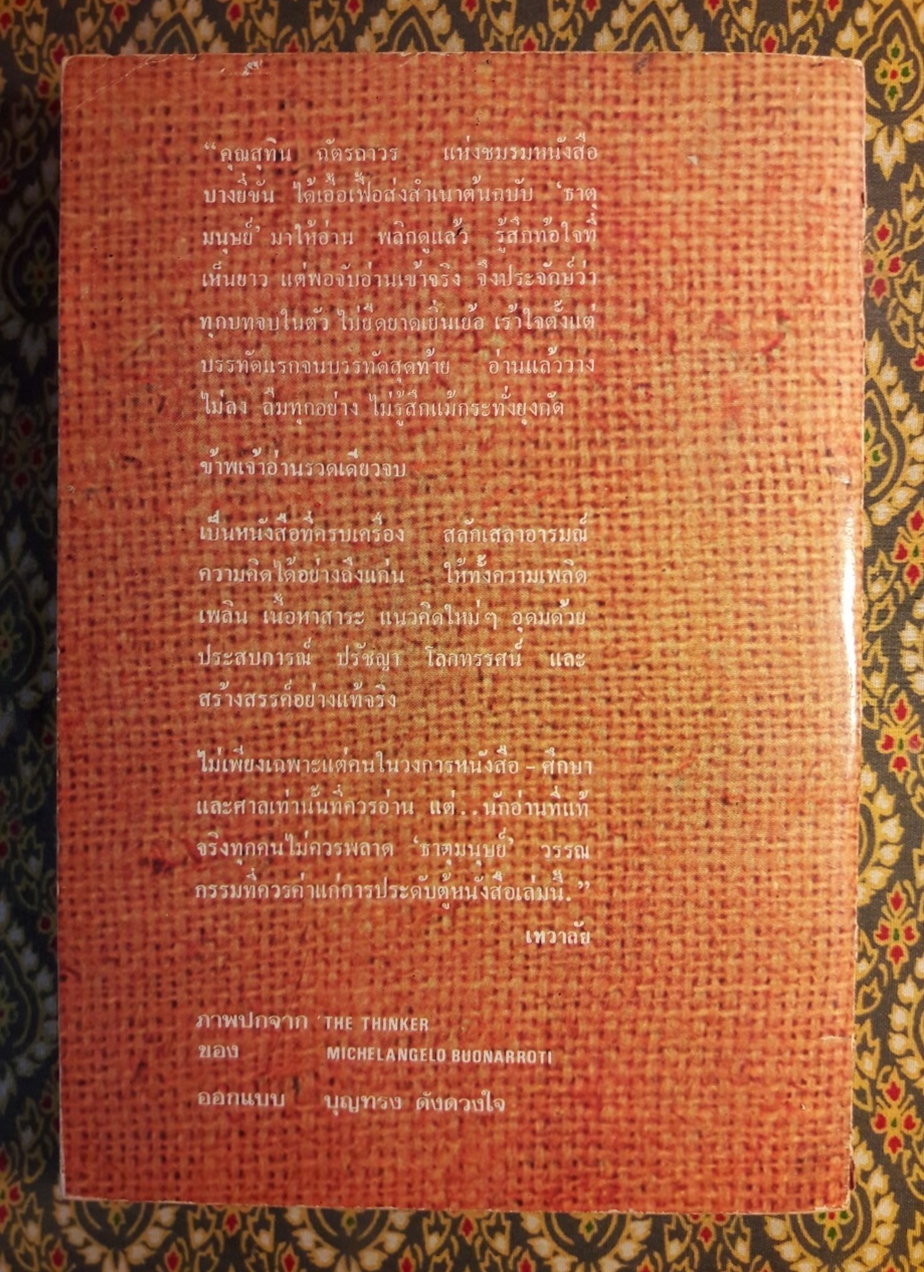 “ คุณสุทิน ฉัตรถาวร แห่งชมรมหนังสือ
บางยี่ขัน ได้เอื้อเฟื้อส่งสำเนาต้นฉบับ ‘ธาตุ
มนุษย์’ มาให้อ่าน พลิกดูแล้ว รู้สึกท้อใจที่
เห็นยาว แต่พอจับอ่านเข้าจริง จึงประจักษ์ว่า
ทุกบทจบในตัว ไม่ยืดยาดเยิ่นเย้อ เร้าใจตั้งแต่
บรรทัดแรกจนบรรทัดสุดท้าย อ่านแล้ววาง
ไม่ลง ลืมทุกอย่าง ไม่รู้สึกแม้กระทั่งยุงกัด
ข้าพเจ้าอ่านรวดเดียวจบ
เป็นหนังสือที่ครบเครื่อง สลักเสลาอารมณ์
ความคิดได้อย่างถึงแก่น ให้ทั้งความเพลิด
เพลิน เนื้อหาสาระ แนวคิดใหม่ๆ อุดมด้วย
ประสบการณ์ ปรัชญา โลกทรรศน์ และ
สร้างสรรค์อย่างแท้จริง
ไม่เพียงเฉพาะแต่คนในวงการหนังสือ - ศึกษา
และศาลเท่านั้นที่ควรอ่าน แต่..นักอ่านที่แท้
จริงทุกคนไม่ควรพลาด ‘ธาตุมนุษย์’ วรรณ
กรรมที่ควรค่าแก่การประดับตู้หนังสือเล่มนี้.”
เทวาลัย
ภาพปกจาก ‘THE THINKER
ของ MICHELANGELO BUONARROTI
ออกแบบ บุญทรง ดังดวงใจ